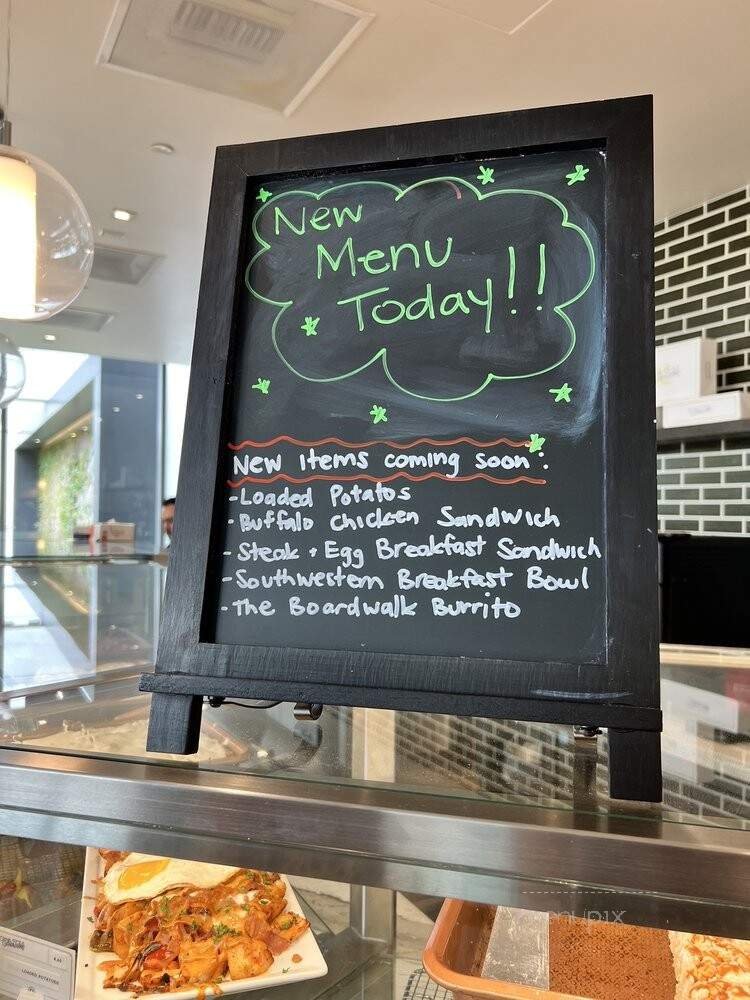 New
Menu
Today!!
New Items coming soon:
- Loaded Potatos
- Buffalo chicken Sandwich
- Steak + Egg Breakfast Sandwich
- Southwestern Breakfast Bowl
- The Boardwalk Burrito
LOADED POTATOES
menupix